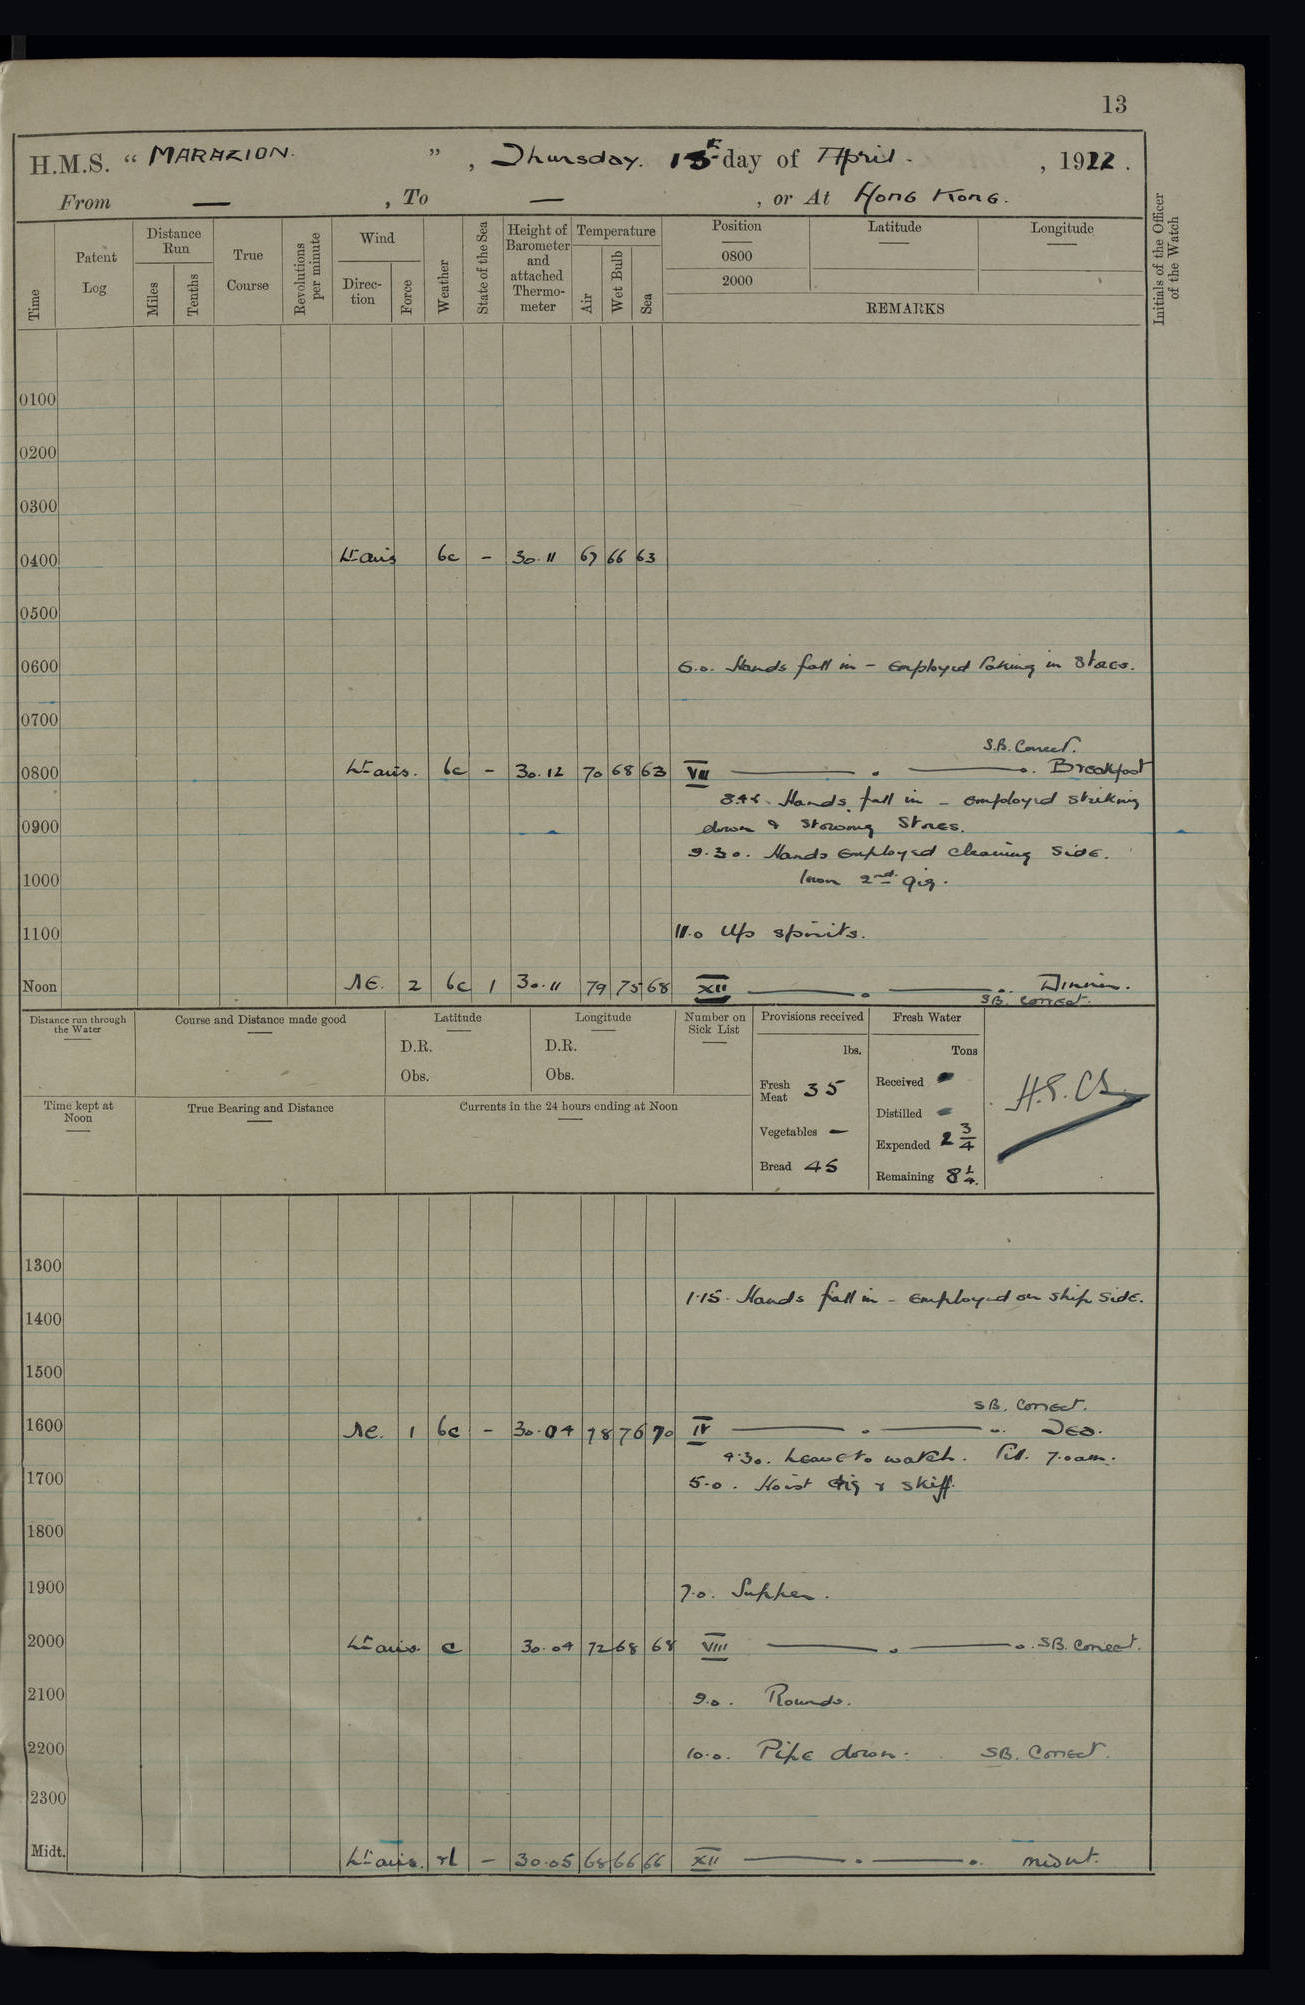 13
H.M.S. “ MARAZION. ” , Thursday. 13th day of April. , 1922 .
From — , To — , or At Hong Kong.
Time
Patent Log
Distance Run
Miles
Tenths
True Course
Revolutions per minute
Wind
Direction
Force
Weather
State of the Sea
Height of Barometer and attached Thermometer
Temperature
Air
Wet Bulb
Sea
Position
0800
2000
Latitude
Longitude
REMARKS
Initials of the Officer of the Watch
0100
0200
0300
0400 Lt airs bc – 30.11 67 66 63
0500
0600 6.0. Hands fall in – employed taking in stores.
0700
S.B. Correct.
0800 Lt airs. bc – 30.12 70 68 63 VIII Breakfast
8.45. Hands fall in – employed striking
0900 down & stowing stores.
9.30. Hands employed cleaning side.
1000 2nd gig.
1100 11.0 Up spirits.
Noon NE. 2 bc 1 30.11 79 75 68 XII Dinner.
S.B. Correct.
Distance run through the Water
Course and Distance made good
Latitude
D.R.
Obs.
Longitude
D.R.
Obs.
Number on Sick List
Provisions received
lbs.
Fresh Meat 35
Vegetables —
Bread 45
Fresh Water
Tons
Received -
Distilled -
Expended 2 3/4
Remaining 8 1/4.
Time kept at Noon
True Bearing and Distance
Currents in the 24 hours ending at Noon
1300
1.15. Hands fall in – employed on ship side.
1400
1500
S.B. Correct.
1600 NE. 1 bc – 30.04 78 76 70 IV Tea.
4.30. Leave to watch. Till 7.0 am.
1700 5.0. Hoist gig & skiff.
1800
1900 7.0. Supper.
2000 Lt airs. c 30.04 72 68 68 VIII S.B. Correct.
2100 9.0. Rounds.
2200 10.0. Pipe down. S.B. Correct.
2300
Midt. Lt airs. rl – 30.05 68 66 66 XII midnt.